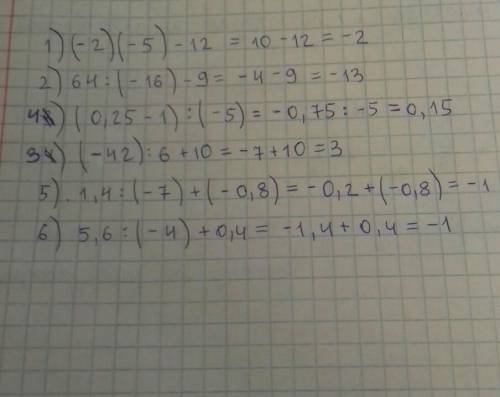 1) (-2)(-5) - 12 = 10 - 12 = -2
2) 64 : (-16) - 9 = -4 - 9 = -13
4) (0,25 - 1) : (-5) = -0,75 : -5 = 0,15
3) (-42) : 6 + 10 = -7 + 10 = 3
5) 1,4 : (-7) + (-0,8) = -0,2 + (-0,8) = -1
6) 5,6 : (-4) + 0,4 = -1,4 + 0,4 = -1